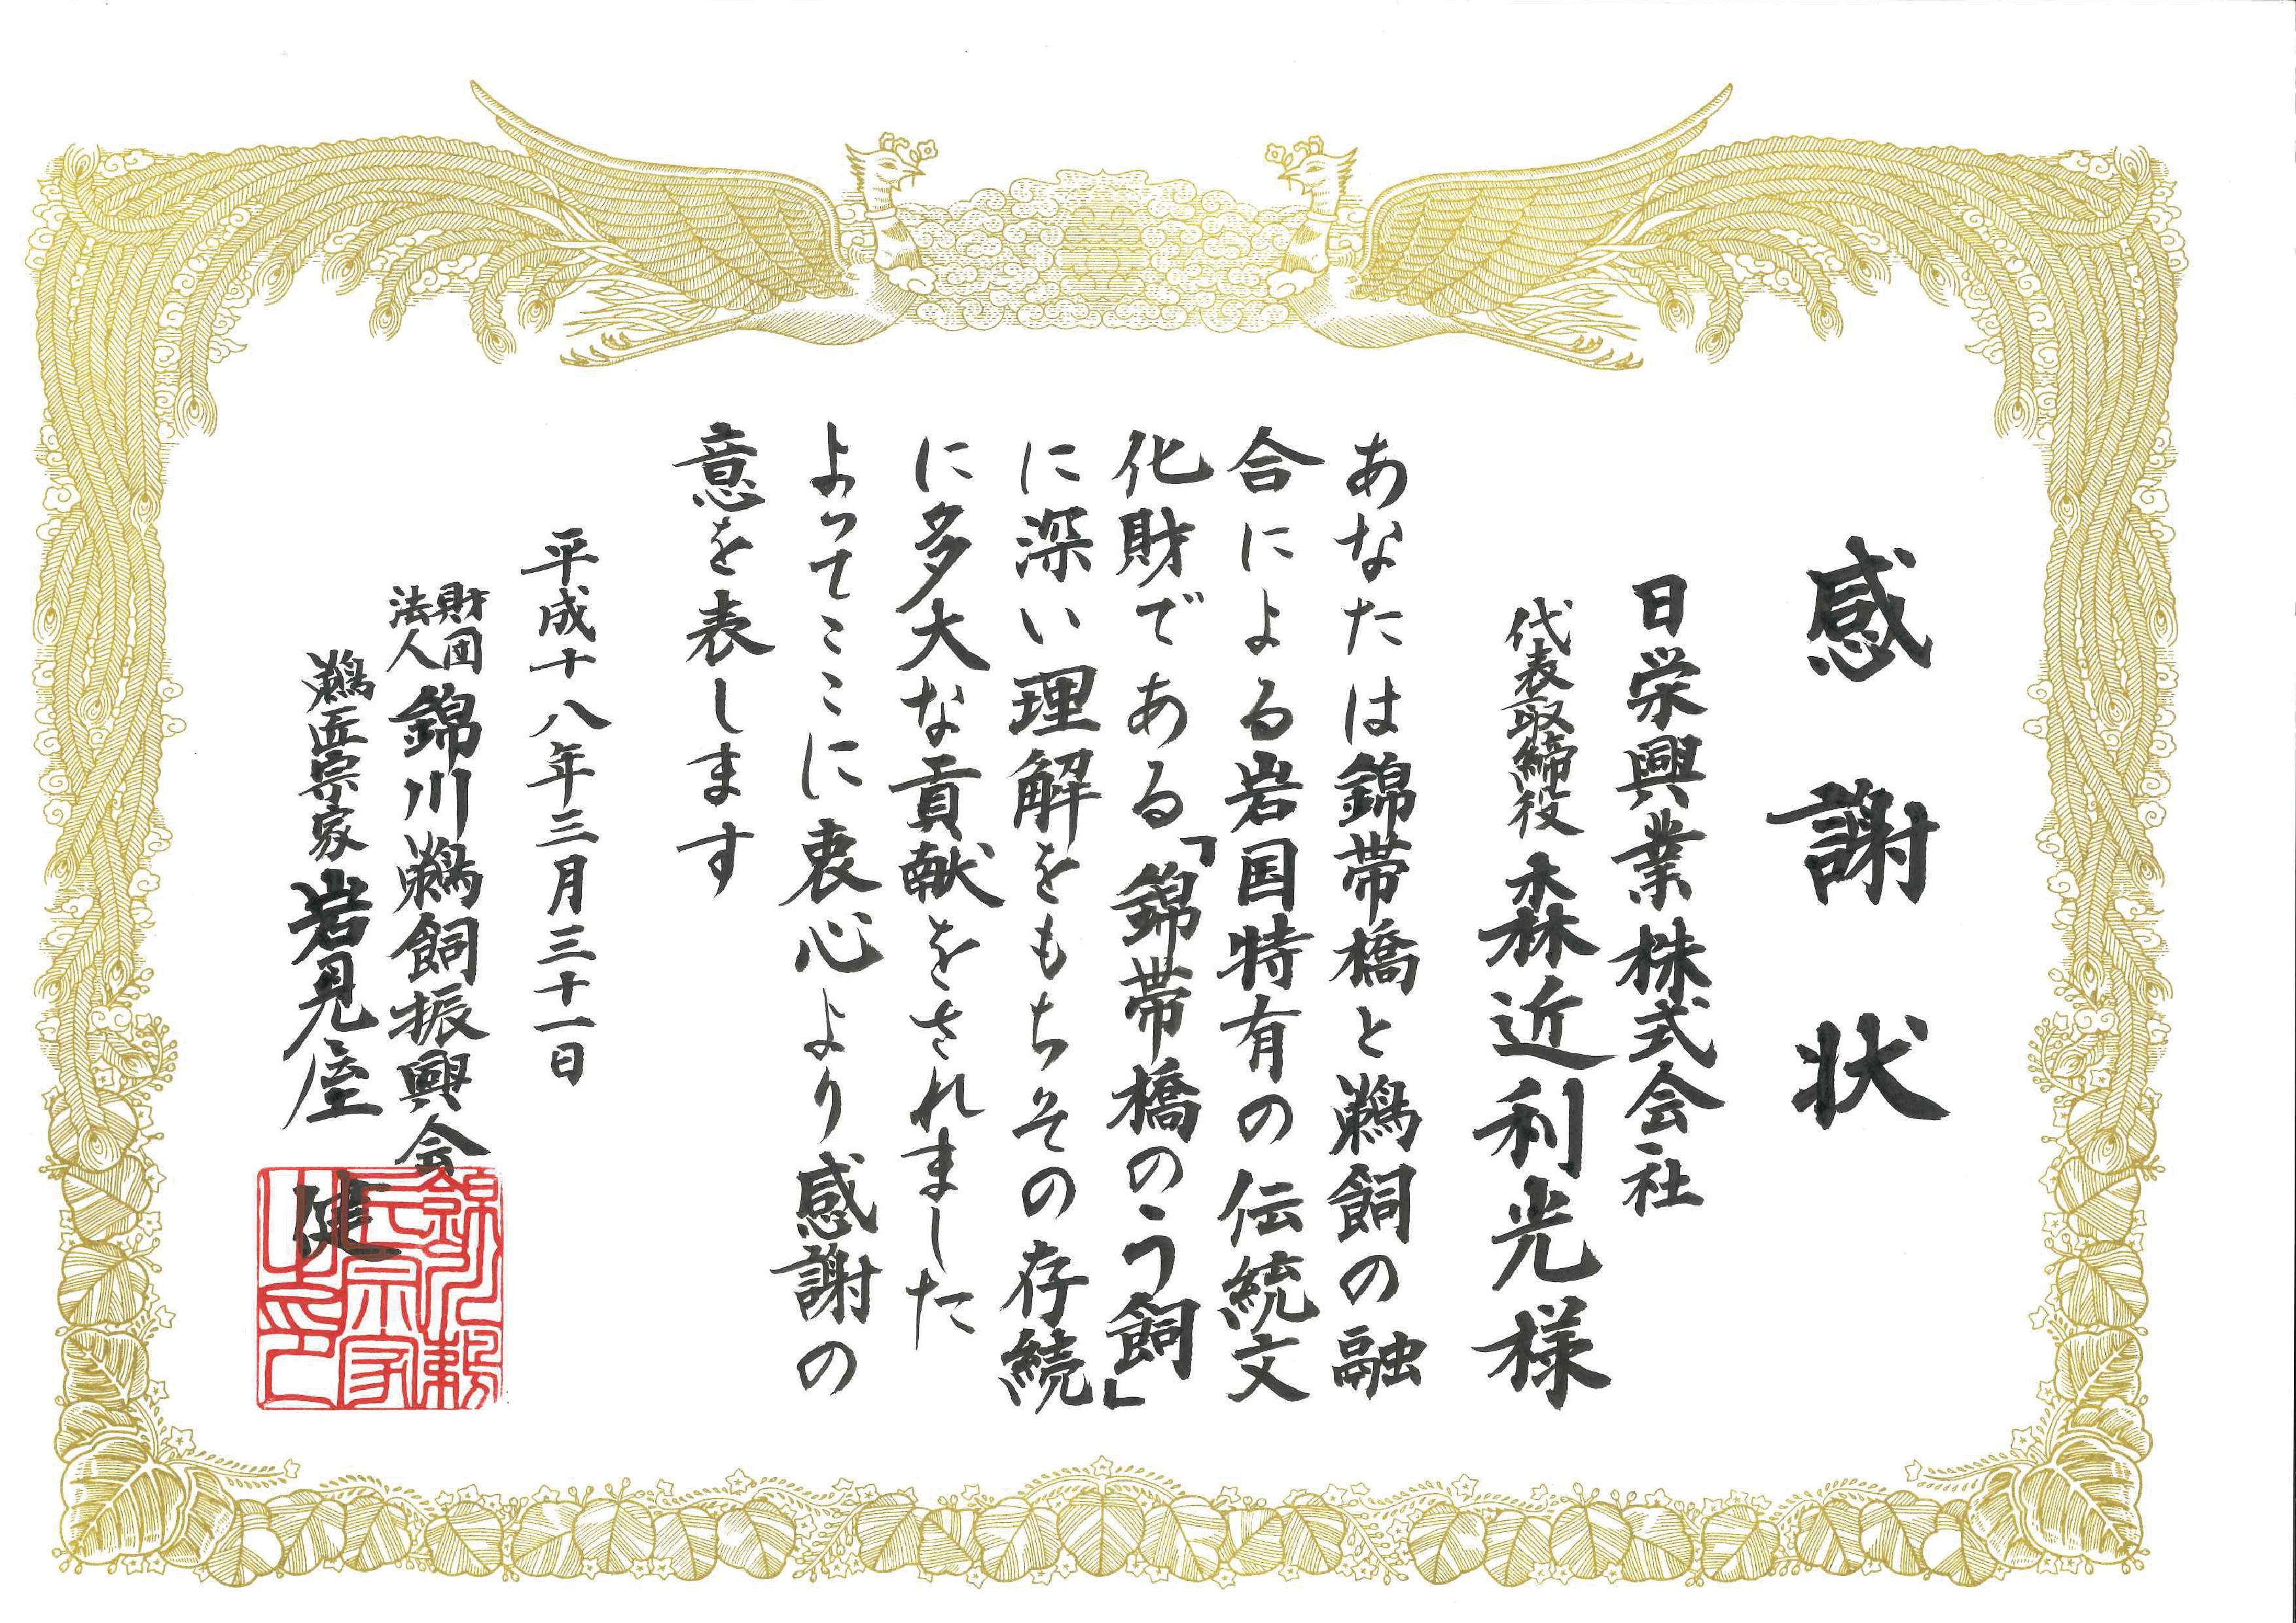 感謝状
日栄興業株式会社
代表取締役 森近利光様
あなたは錦帯橋と鵜飼の融
合による岩国特有の伝統文
化財である「錦帯橋のう飼」
に深い理解をもちその存続
に多大な貢献をされました
よってここに衷心より感謝の
意を表します
平成十八年三月三十一日
財団法人 錦川鵜飼振興会
鵜匠宗家 岩見屋 健